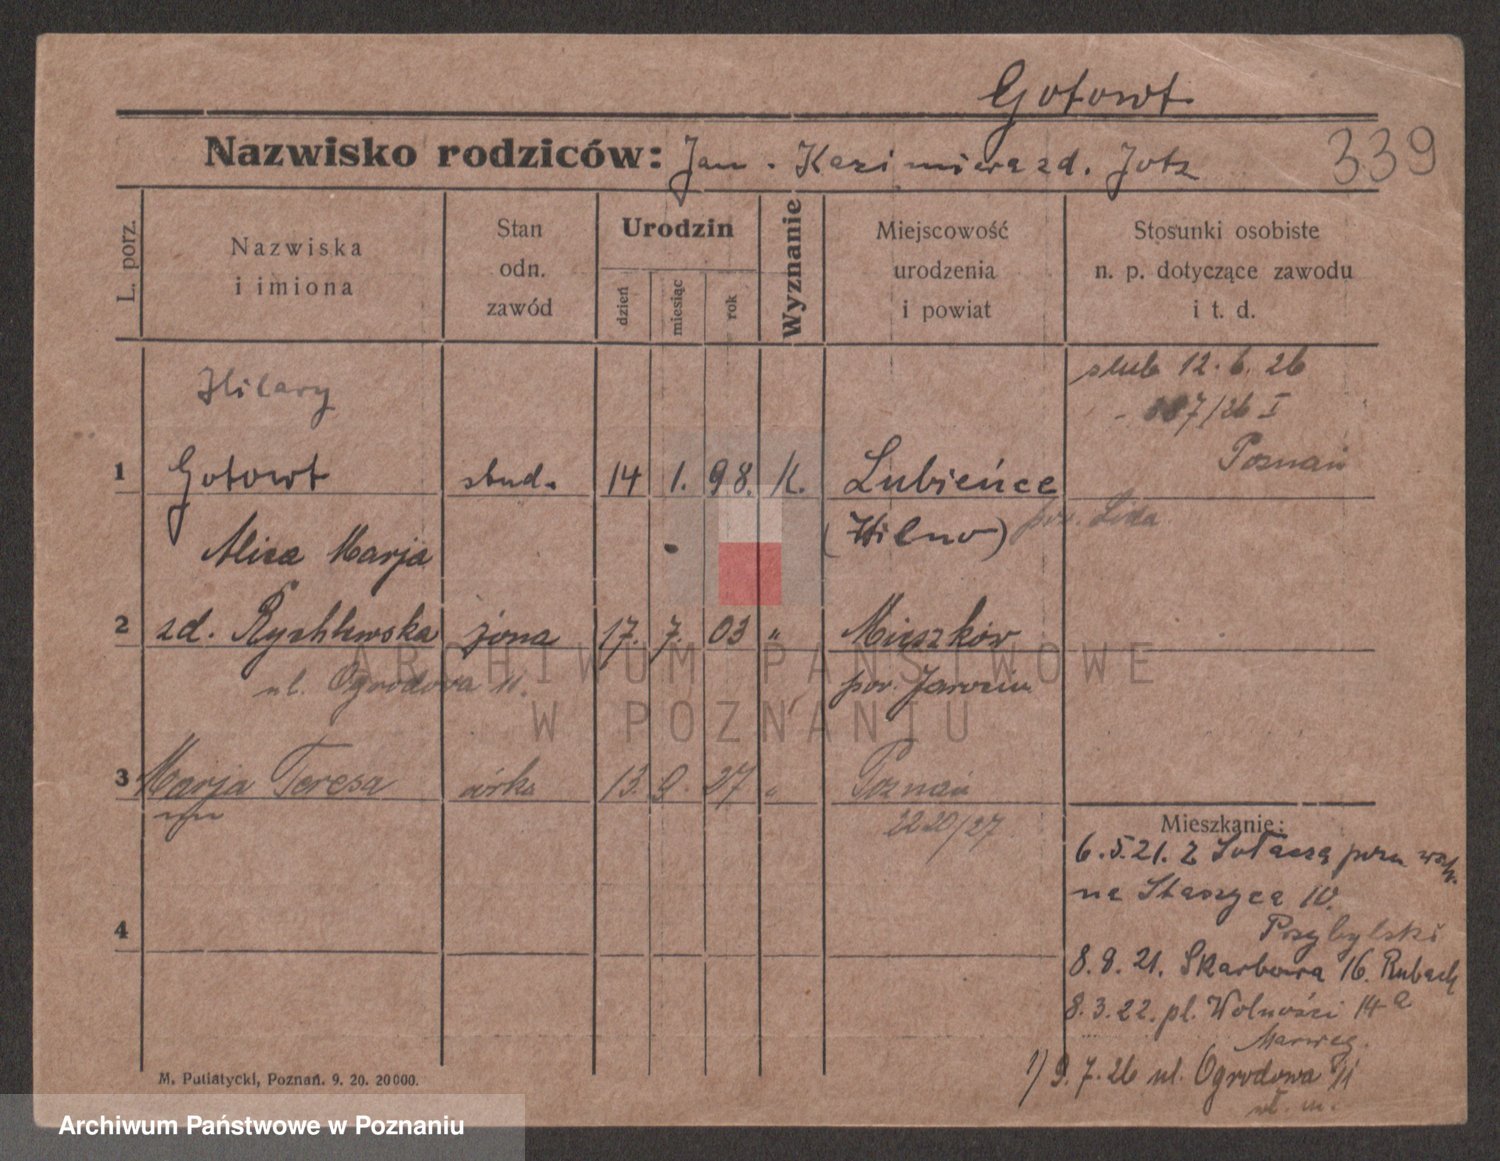 Gotowt
339
Nazwisko rodziców: Jan - Kazimiera zd. Jotz
L. porz.
Nazwiska
i imiona
Stan
odn.
zawód
Urodzin
dzień
miesiąc
rok
Wyznanie
Miejscowość
urodzenia
i powiat
Stosunki osobiste
n. p. dotyczące zawodu
i t. d.
Hilary
ślub 12. 6. 26
887/26 I
Poznań
1 Gotowt stud. 14 1. 98. K. Lubieńce
(Wilno) pow. Lida
Aliza Marja
2 zd. Rychlewska żona 17. 7. 03 „ Mieszków
ul. Ogrodowa 11. pow. Jarocin
3 Marja Teresa córka 13. 9. 27 „ Poznań
2220/27
4
Mieszkanie:
6. 5. 21. z Sołacza
na Staszyca 10.
Przybylski
8. 9. 21. Skarbowa 16. Rubach
8. 3. 22. pl. Wolności 14 a
Marweg.
1) 9. 7. 26 ul. Ogrodowa 11
wł. m.
M. Putiatycki, Poznań. 9. 20. 20000.
ARCHIWUM PAŃSTWOWE
W POZNANIU
Archiwum Państwowe w Poznaniu